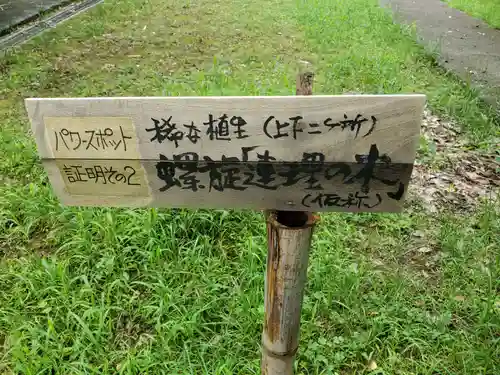 パワースポット
証明その2
稀な植生(上下二ヶ所)
螺旋「連理の木」
(仮称)